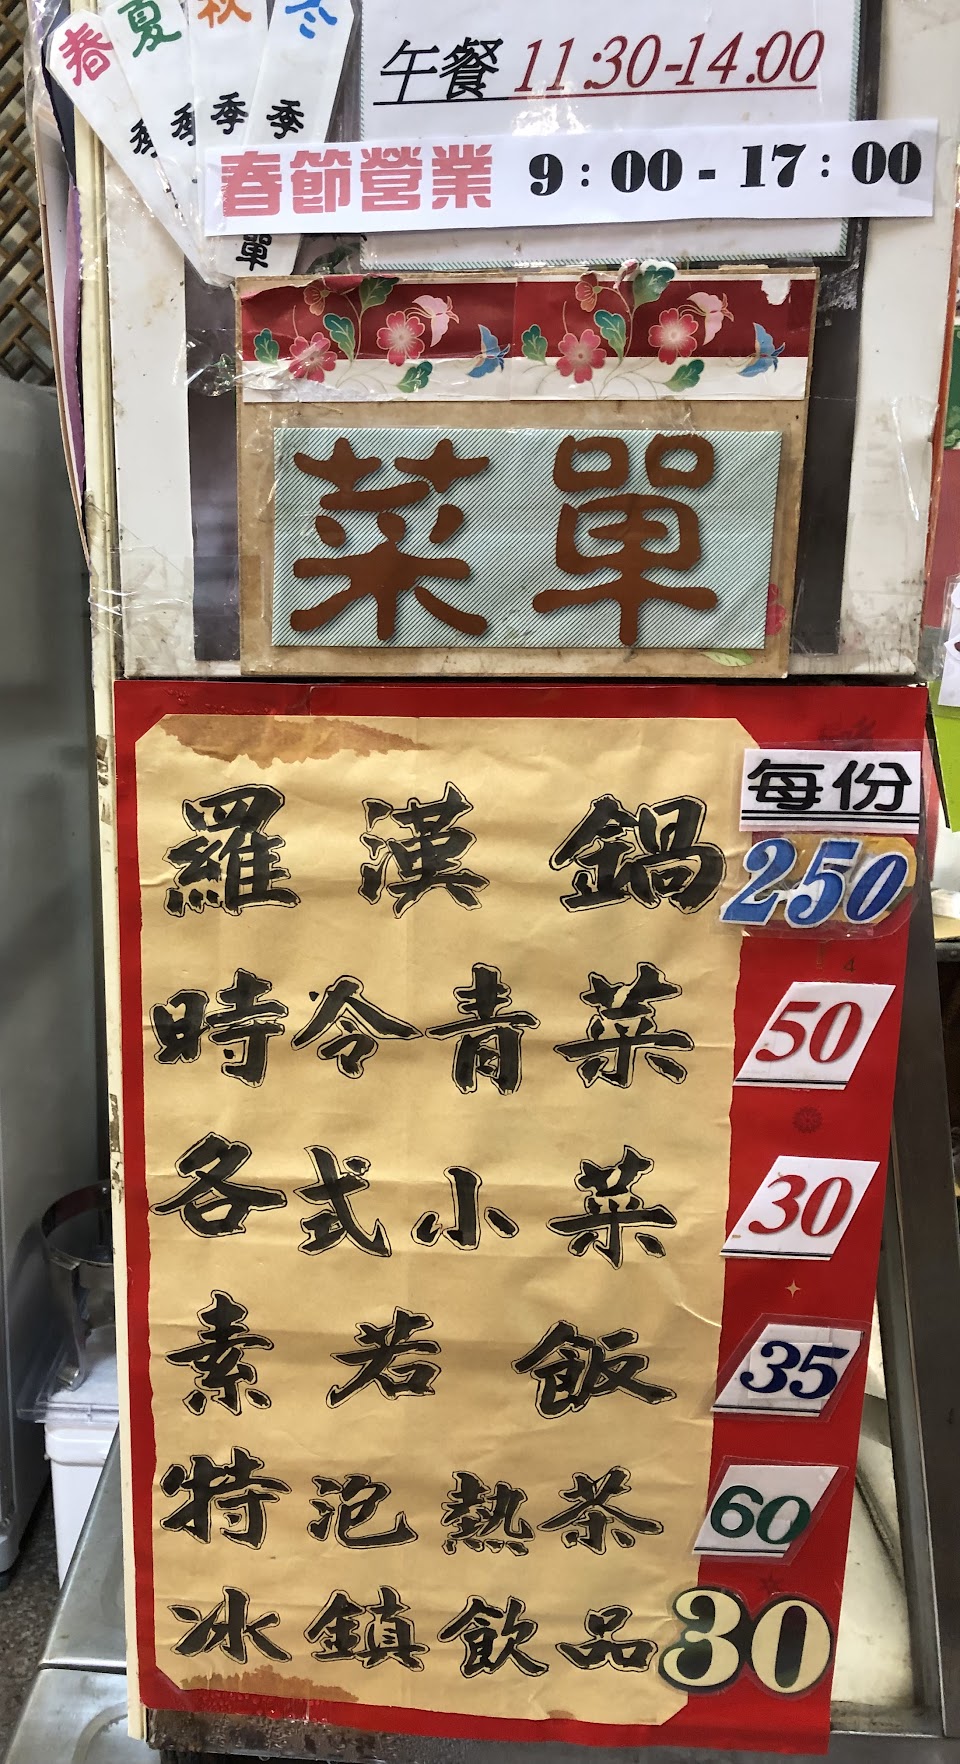 春 夏 秋 冬
季 季 季 季
單
午餐 11:30-14:00
春節營業 9:00-17:00
菜單
每份
羅漢鍋 250
時令青菜 50
各式小菜 30
素若飯 35
特泡熱茶 60
冰鎮飲品 30